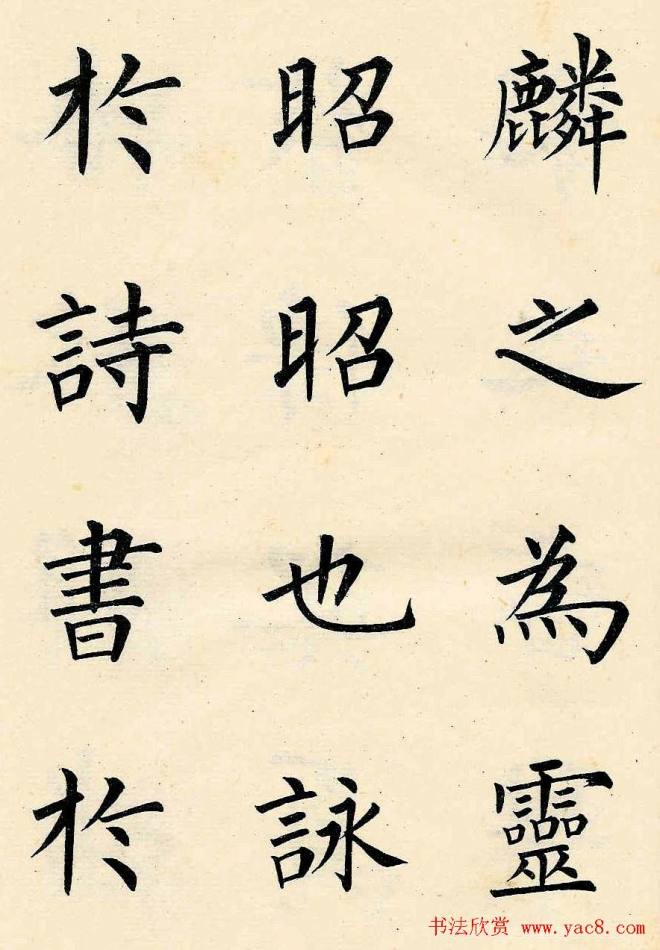 麟之為靈
昭昭也詠
於詩書於
书法欣赏 www.yac8.com